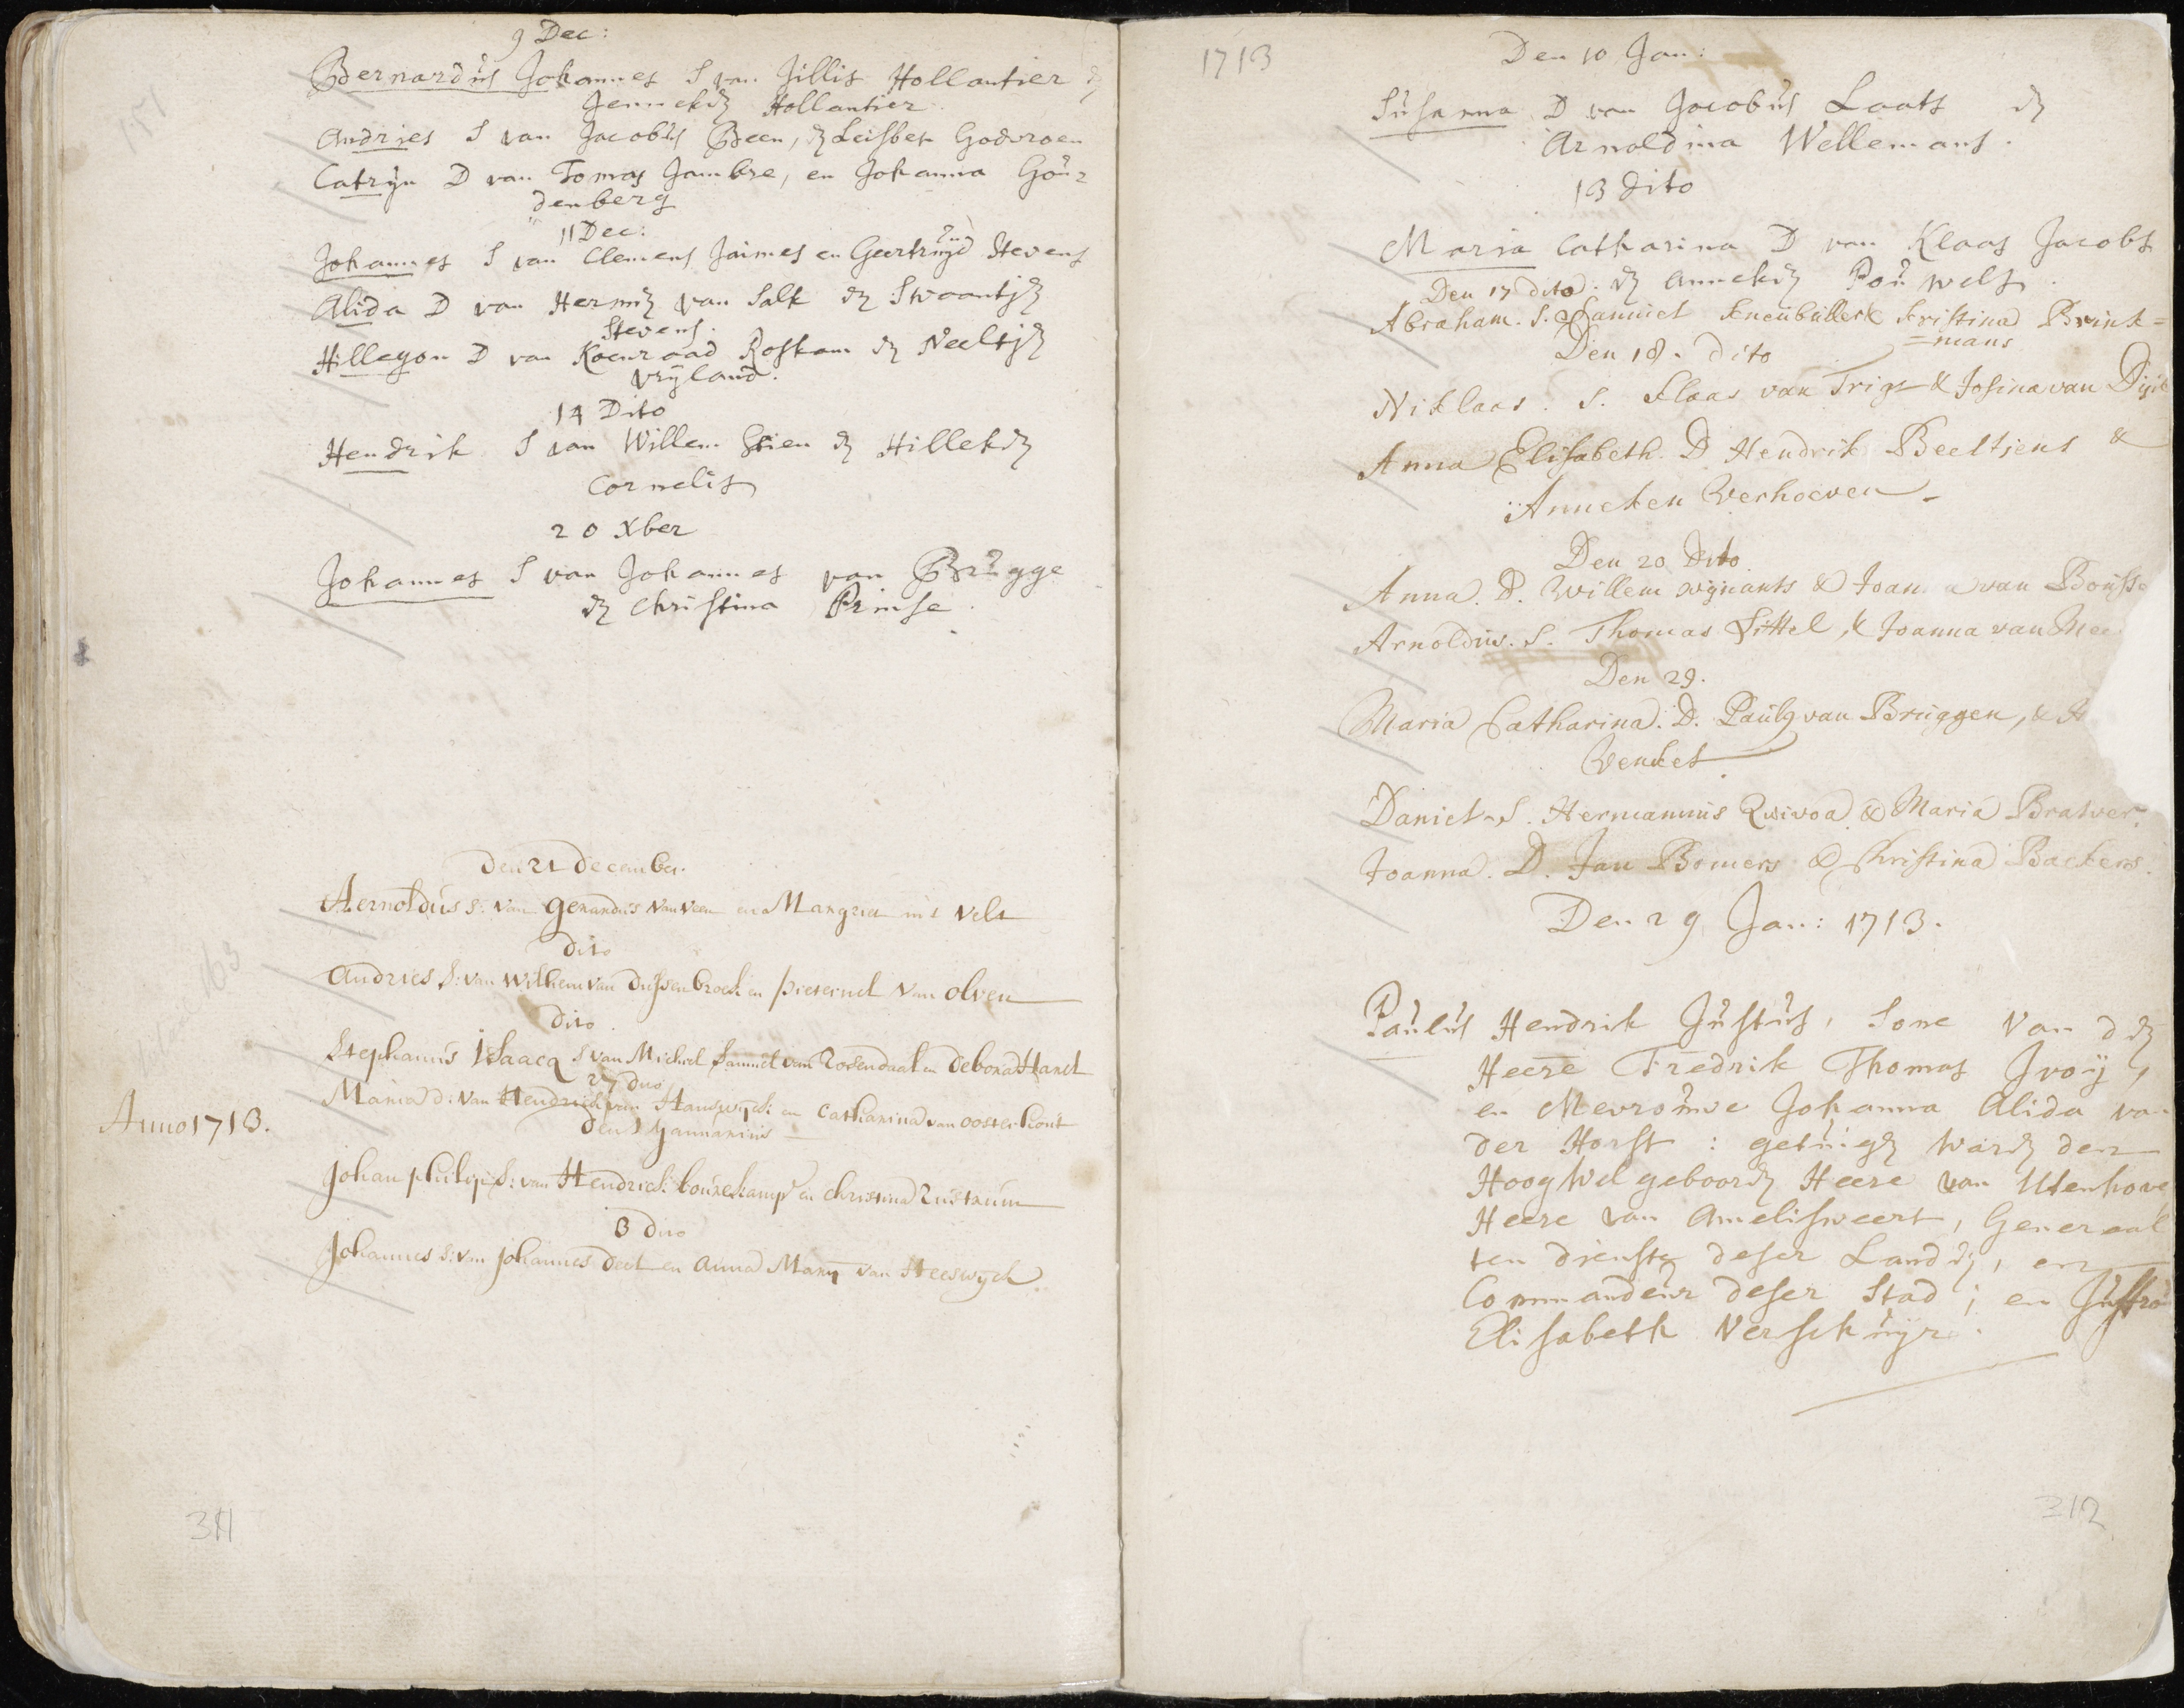 9 Dec:
Bernardus Johannes S van Jillis Hollantier en
Jenneken Hollantier.
Andries S van Jacobus Been, en Leisbet Godvroen
Catryn D van Tomas Jambre, en Johanna Gou=
denberg
11 Dec:
Johannes S van Clemens Jaimes en Geertruyd Stevens
Alida D van Hermen van Salk en Swaantjen
Stevens.
Hillegon D van Koenraad Roskam en Neeltjen
Vryland.
14 Dito
Hendrik S van Willem en Hilleken
Cornelis
20 Xber
Johannes S van Johannes van Brugge
en Christina Prinse.
Den 21 December.
Aernoldus S: van Gerardus van Veen en Margriet in't Velt
dito
Andries S: van Willem van Dussenbroek en Pieternel van Olven
dito.
Stephanus Isaacq S van Michiel Samuel van Rosendaal en Debora Hanet
27 dito
Maria d: van Hendrick van Hauswyck: en Catharina van Oosterhout
Anno 1713.
den 1 Januarius
Johan philips S: van Hendrick: en Christina
3 dito
Johannes S: van Johannes en Anna Mary van Heeswyck
311
1713
Den 10 Jan:
Susanna D van Jacobus Laats en
Arnoldina Wellemans.
13 dito
Maria Catharina D van Klaas Jacobs
Den 17 dito. en Anneken Pouwels.
Abraham. S. Samuel & Kristina Brink=
=mans
Den 18. dito
Niklaas. S. Klaas van Trigt & Josina van
Anna Elisabeth. D Hendrik Beeltjens &
Anneken Verhoeven
Den 20 dito
Anna. D. Willem Wynants & Joanna van
Arnoldus. S. Thomas Sittel, & Joanna van
Den 29.
Maria Catharina. D. Pauly van Bruggen, &
Venket
Daniel. S. Hermannus & Maria
Joanna. D. Jan Bomers & Christina Backers.
Den 29 Jan: 1713.
Paulus Hendrik Justus, Sone van den
Heere Fredrik Thomas Ivoÿ,
en Mevrouwe Johanna Alida van
der Horst: getuigen waren den
Hoog Wel geboorn Heere van Utenhove
Heere van Amelisweert, Generaal
ten dienste deser Landen, en
Commandeur deser Stad; en Juffrou
Elisabeth Verschuyr.
312